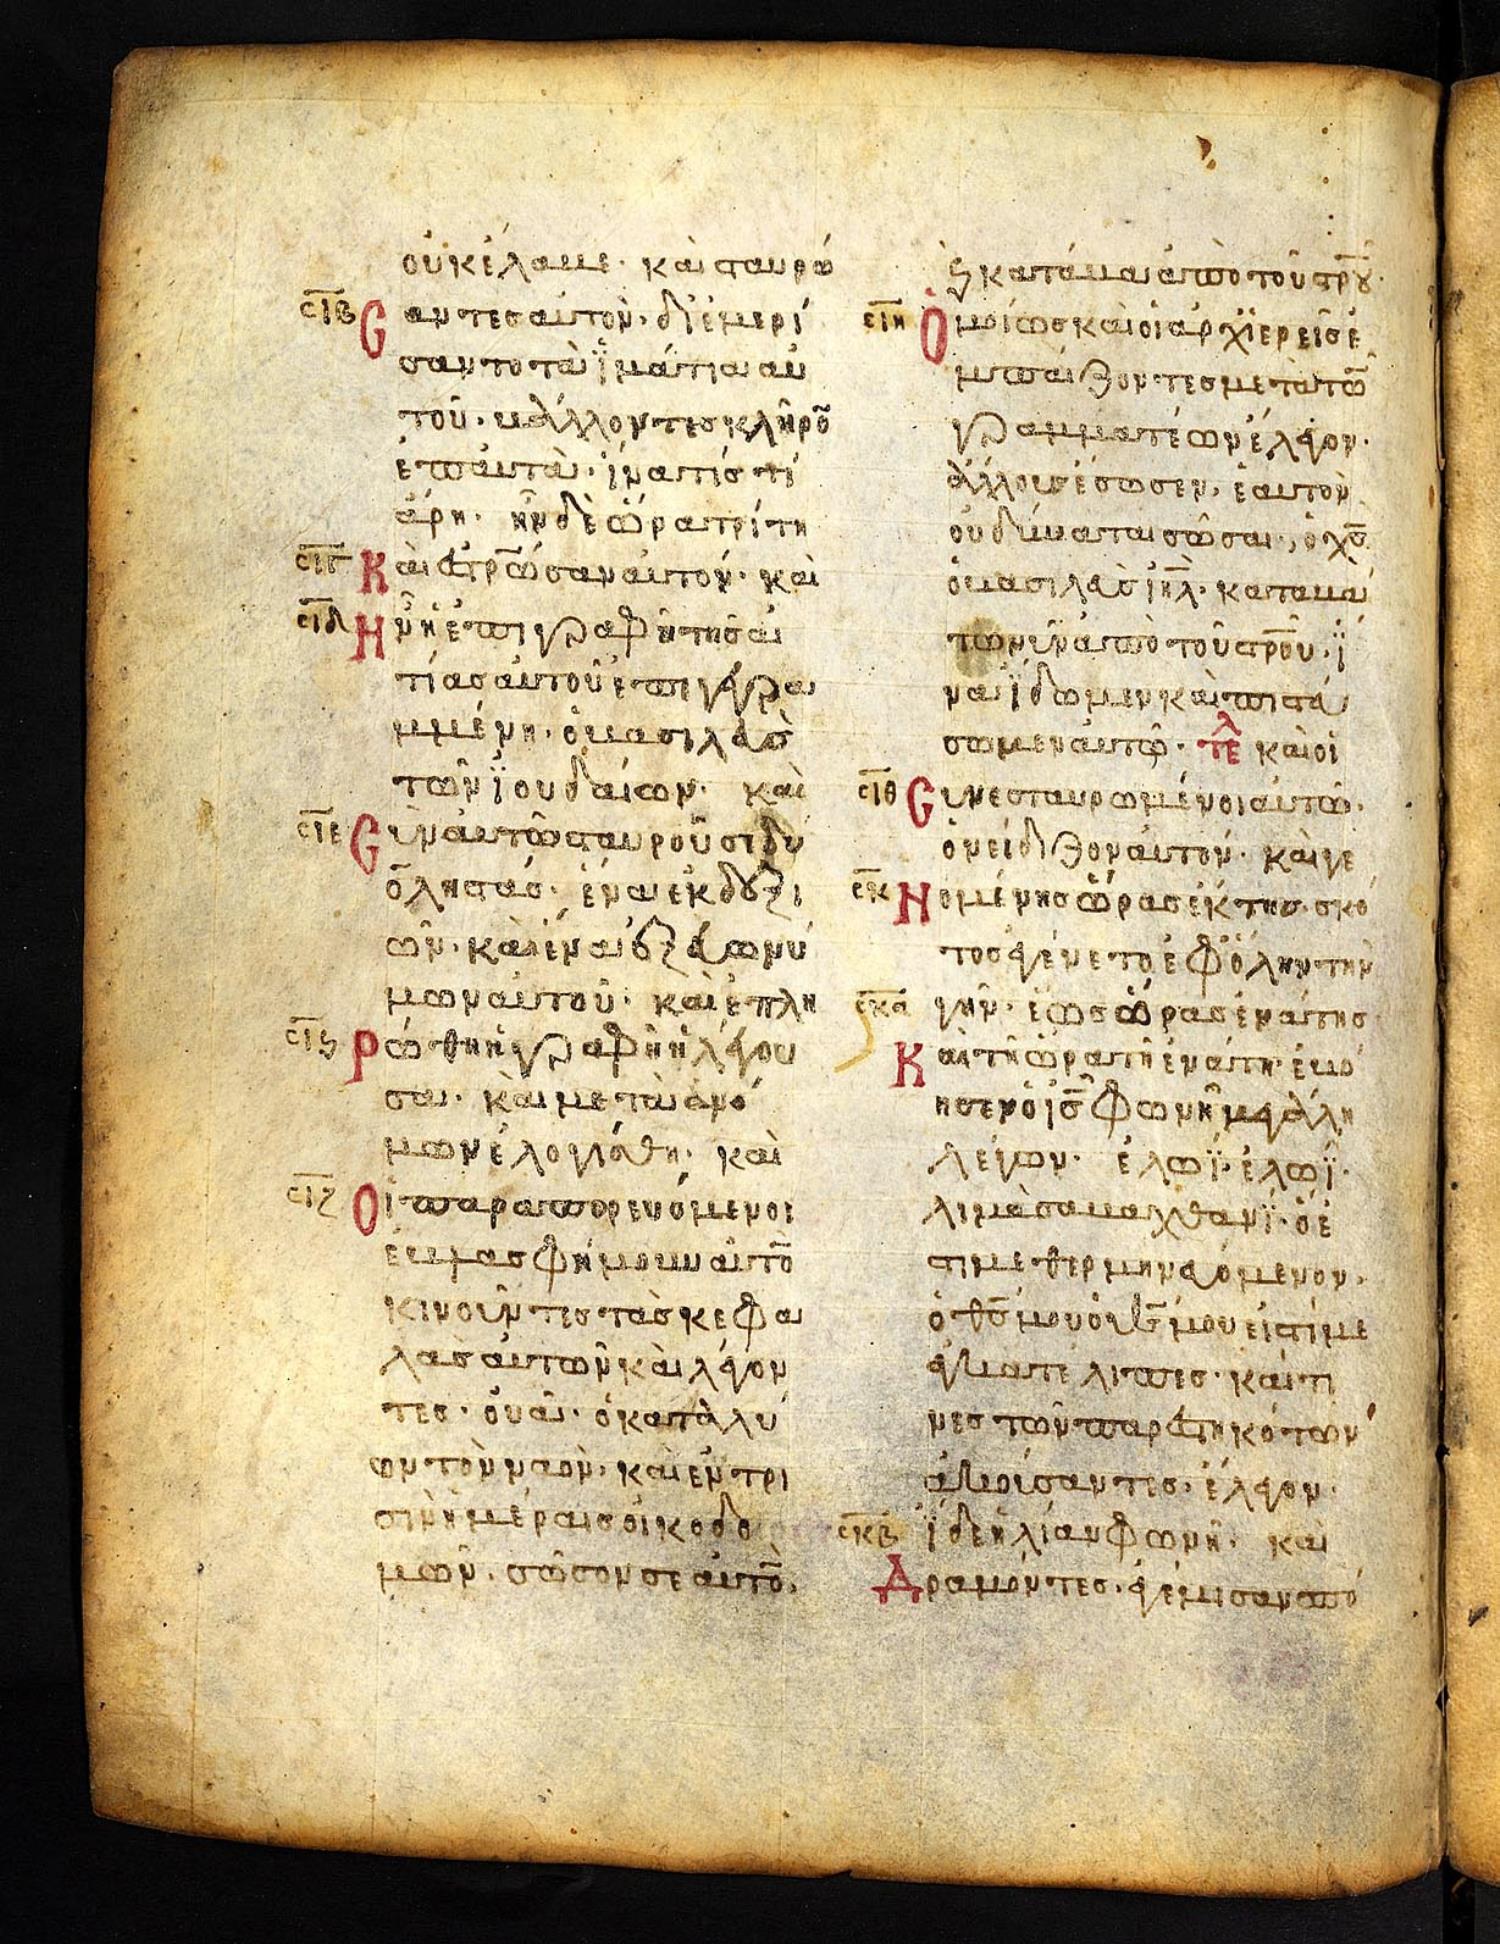 οὐκ ἔλαβε· καὶ σταυρώ
σιβ Σαντες αὐτὸν· διεμερί
σαντο τὰ ϊμάτια αυ
τοῦ· βάλλοντες κλῆρο̅
ἐπ' αὐτὰ· ἵνα τίς τί
ἄρη· ἦν δὲ ὥρα τρίτη
σιγ Καὶ ἐστρω̅σαν αὐτόν· καὶ
σιδ Ην ἡ ἐπιγραφὴ τῆς αἰ
τίας αὐτοῦ ἐπιγεγρα
μμένη· ὁ βασιλεὺς
τῶν ϊουδαίων· καὶ
σιε Σὺν αὐτῶ σταυροῦσι δύ
ο λῃστάς· ἕνα ἐκ δεξι
ῶν· καὶ ἕνα ἐξ εὐωνύ
μων αὐτοῦ· καὶ ἐπλη
σιϛ Ρώθη ἡ γραφὴ ἡ λέγου
σα· καὶ μετὰ ἀνό
μων ἐλογίσθη· καὶ
σιζ Οἱ παραπορευόμενοι
ἐβλασφήμουν αὐτὸ̅
κινοῦντες τὰς κεφα
λὰς αὐτῶν καὶ λέγον
τες· οὐαί· ὁ καταλύ
ων τὸν ναὸν· καὶ ἐν τρι
σὶν ἡμέραις οἰκοδο
μῶν· σῶσον σεαυτὸ̅·
ϗ κατάβα ἀπὸ τοῦ στρ̅ου·
σιη Ὁμοίως καὶ οἱ ἀρχϊερεῖς ἐ
μπαίζοντες μετὰ τῶ̅
γραμματέων ἔλεγον·
ἄλλους ἔσωσεν· ἑαυτὸν
οὐ δύναται σῶσαι· ὁ χ̅ς̅
ὁ βασιλεὺς ι̅η̅λ̅· καταβά
τω νῦν ἀπὸ τοῦ στρ̅ου· ϊ
να ϊδωμεν καὶ πιστεύ
σωμεν αὐτῶ· τε̅λ καὶ οἱ
σιθ Συνεσταυρωμένοι αὐτῶ·
ὀνείδιζον αὐτόν· καὶ γε
σκ Νομένης ὥρας ἕκτης· σκό
τος ἐγένετο ἐφ' ὅλην τὴν
σκα γῆν· ἕως ὥρας ἐνάτης
Καὶ τῆ ὥρα τῆ ἐνάτη· ἐβό
ησεν ὁ ι̅ς̅ φωνῆ μεγάλη
λέγων· ἐλωῒ· ἐλωῒ·
λιμὰ σαβαχθανῒ· ὅ ἐ
στι μεθερμηνευόμενον·
ὁ θ̅ς̅ μου ὁ θ̅ς̅ μου εἰς τί με
ἐγκατέλιπες· καί τι
νες τῶν παρεστηκότων
ἀκούσαντες· ἔλεγον·
σκβ ϊδε ἠλίαν φωνῆ· καὶ
Δραμόντες· ἐγέμισαν σπό